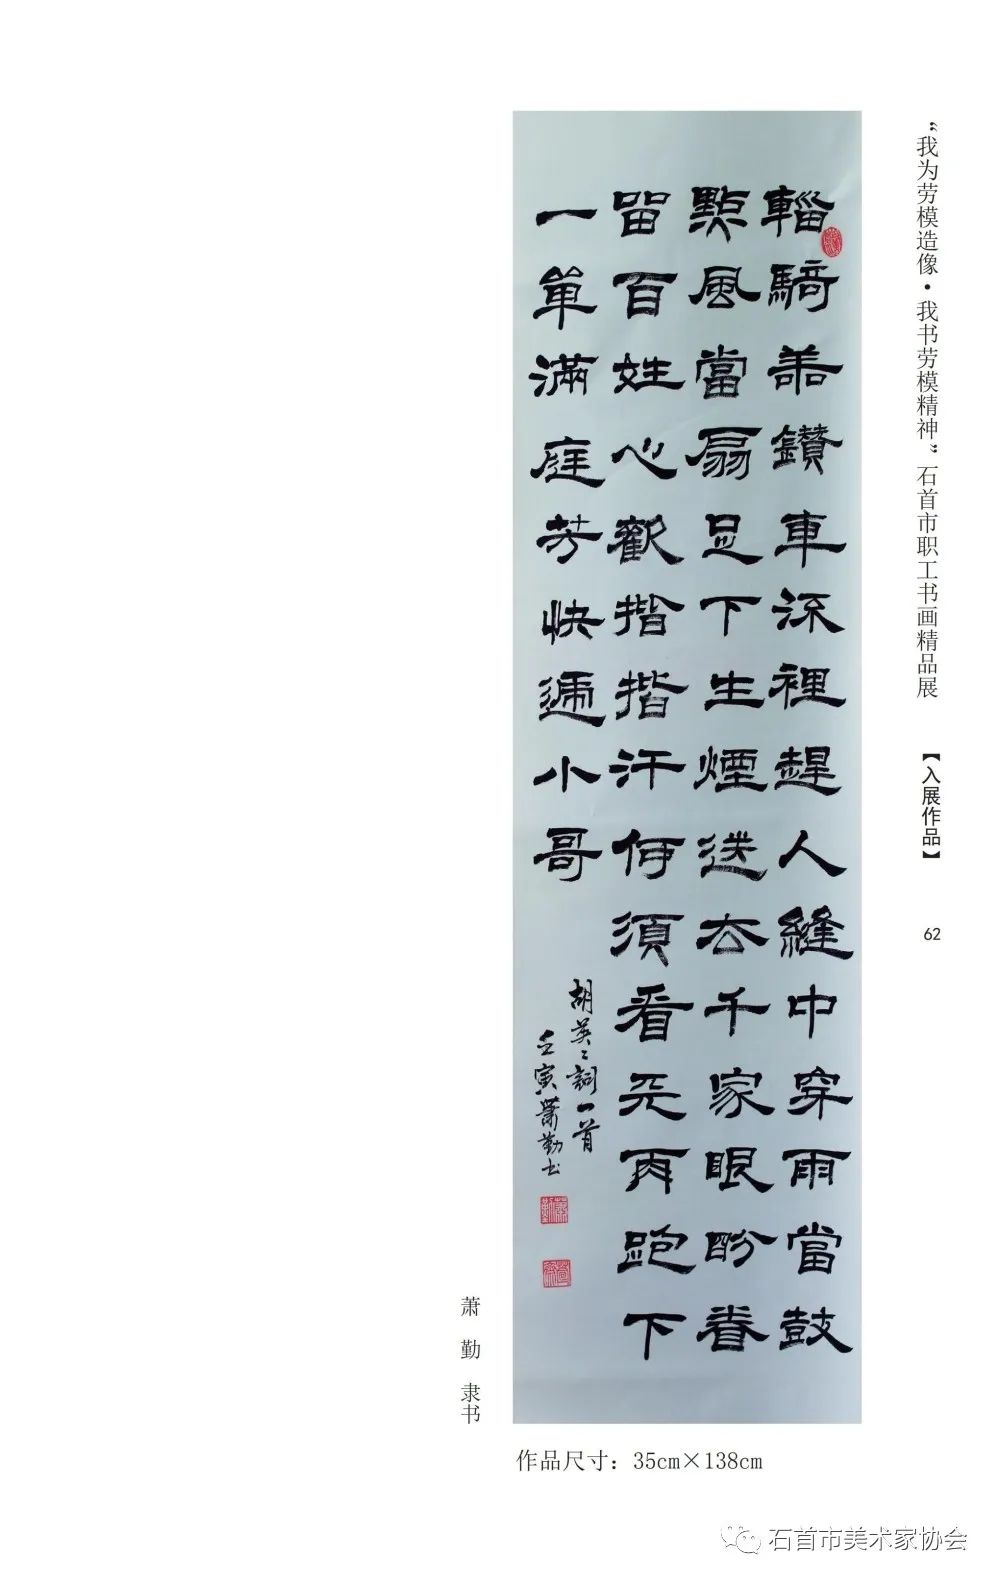 “我为劳模造像·我书劳模精神”石首市职工书画精品展
【入展作品】
62
輜騎善鑽車流裡趕人縫中穿雨當鼓
點風當扇足下生煙送去千家眼盼眷
留百姓心歡揩揩汗何須看天再跑下
一單滿庭芳快遞小哥
胡英〻詞一首
壬寅蕭勤书
萧 勤 隶书
作品尺寸：35cm×138cm
石首市美术家协会